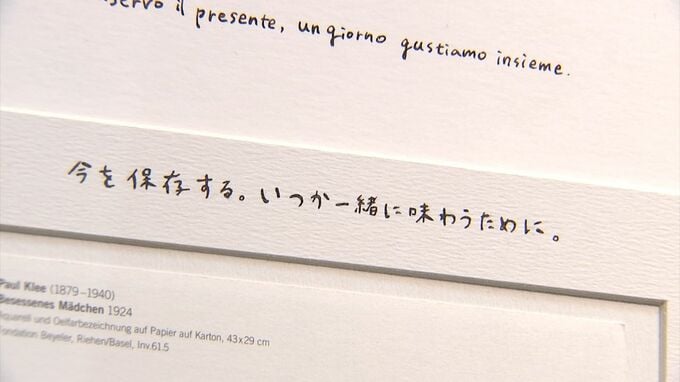 il presente, un giorno gustiamo insieme.
今を保存する。いつか一緒に味わうために。
Paul Klee (1879–1940)
Besessenes Mädchen 1924
Aquarell und Oelfarbezeichnung auf Papier auf Karton, 43x29 cm
Fondation Beyeler, Riehen/Basel, Inv.61.5